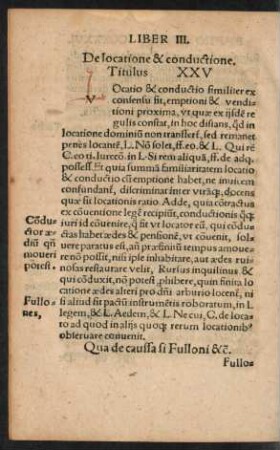 LIBER III.
De locatione & conductione.
Titulus XXV
LOcatio & conductio similiter ex
consensu fit, emptioni & vendi
tioni proxima, vt quæ ex ijsdē re
gulis constat, in hoc distans, qd̄ in
locatione dominiū non transfert, sed remanet
penes locantē, L. Nō solet, ff. eo. & L. Qui rē
C. eo ti. Iureco. in L. Si rem aliquā, ff. de adq.
possess. Et quia summā familiaritatem locatio
& conductio cū emptione habet, ne inuicem
confundans, discriminat inter vtāq;, quia quæ
cōtractus sit locationis ratio. Adde, quia cōtra
ctus ex cōuentione legē recipiūt, conductionis
iuri id cōuenire, si sit vt locator eū, qui cō
ductas habet ædes & pensionē, vt cōuenit, sol
uere paratus est, añ præfinitū tempus amoue
re nō possit, nisi ipse inhabitare, aut ædes rui
nosas restaurare velit, Rursus inquilinus &
qui cōduxit, nō potest phibere, quin finita lo
catione ædes alteri pro dñi arbitrio locent, ni
si aliud sit pactū instrumētis roboratum, in L.
legem, & L. Aedem, & L. Ne cui, C. de loca
to ad quod in alijs quoq; rerum locationib
obseruare conuenit.
Cōdu
ctor æ
diū qñ
moueri
potest.
Fullo
nes,
Qua de caussa si Fulloni &c̄.
Fullo-